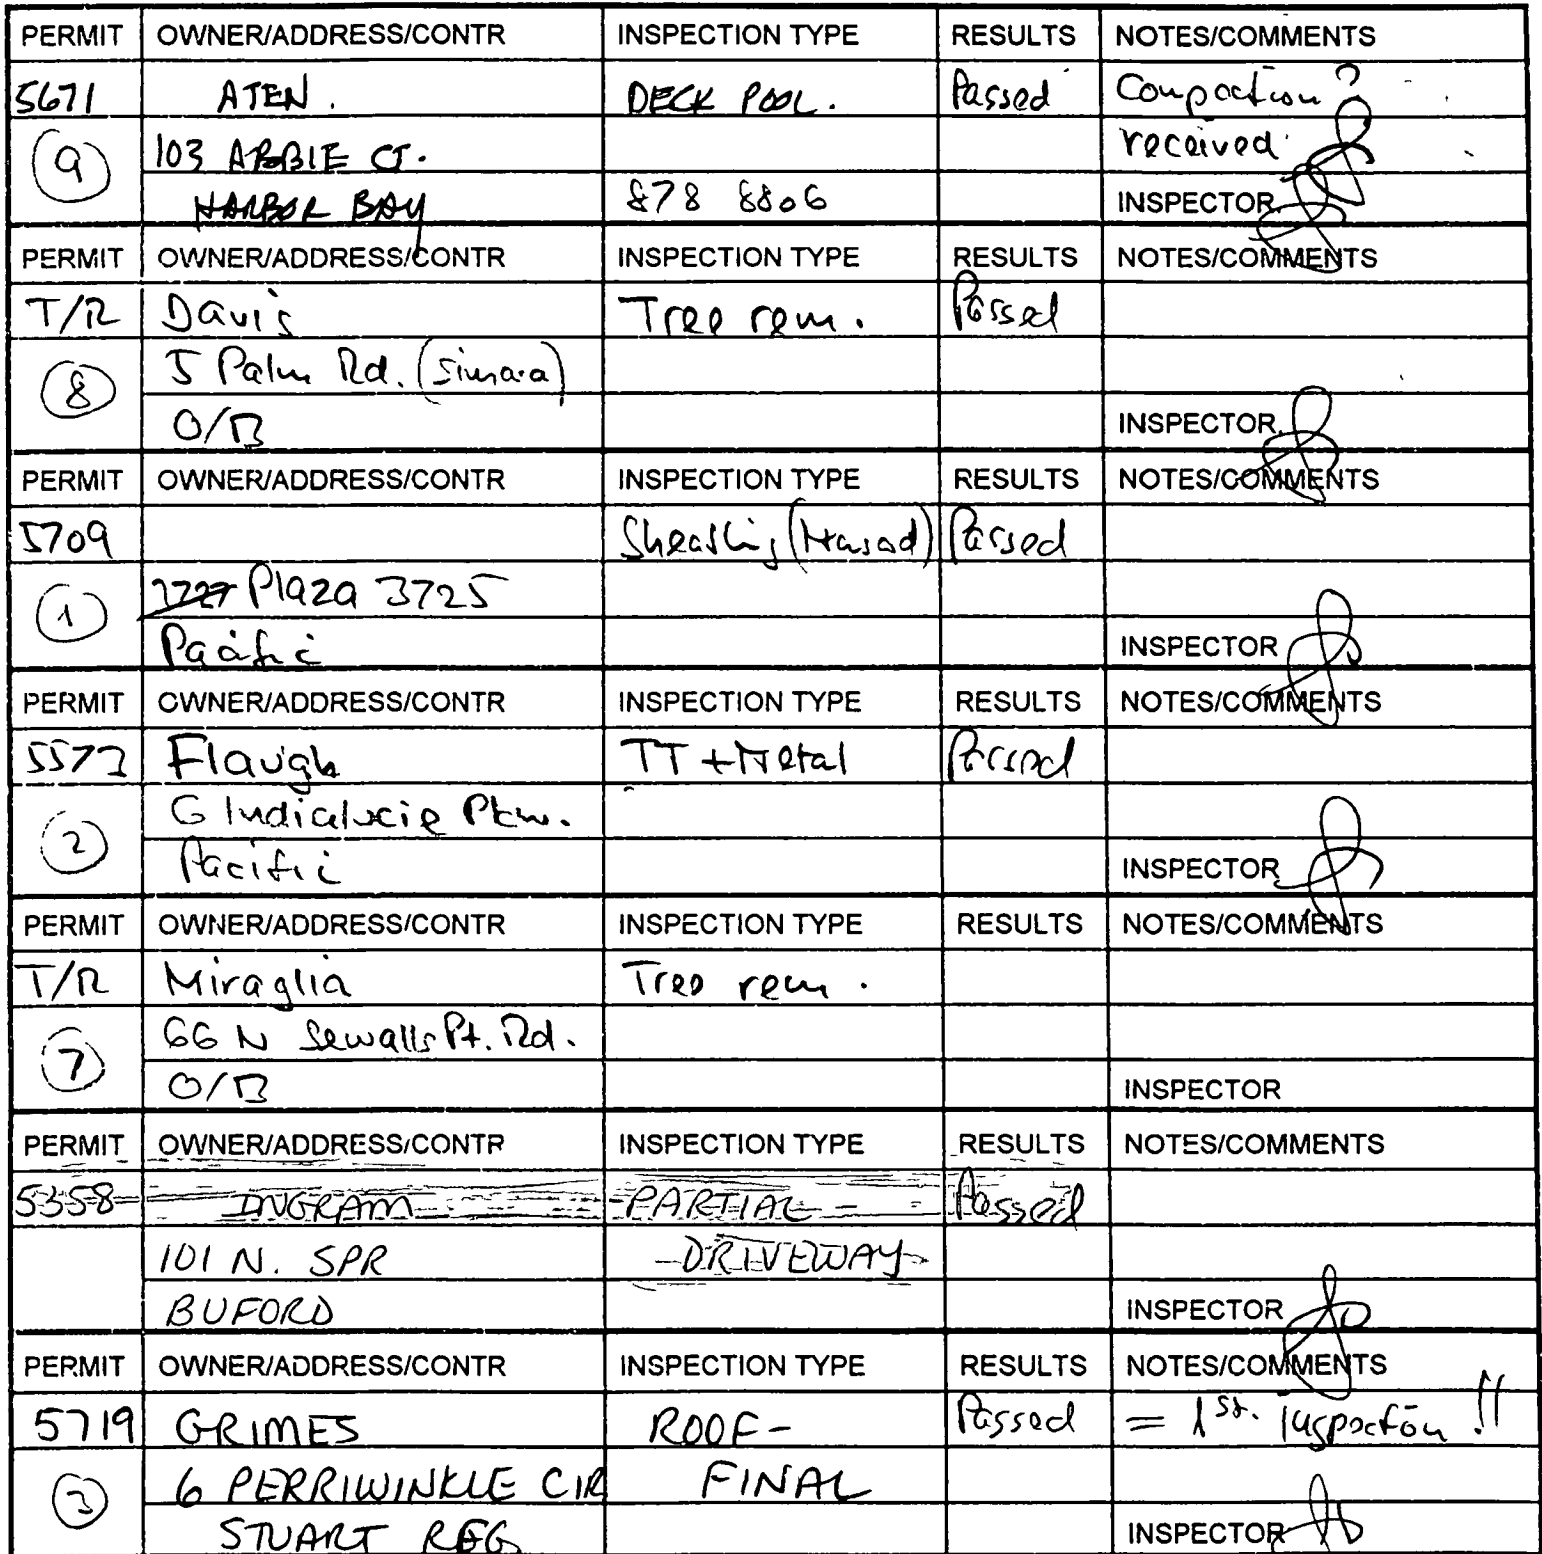 PERMIT OWNER/ADDRESS/CONTR INSPECTION TYPE RESULTS NOTES/COMMENTS
5671 ATEN. DECK POOL. Passed Compaction?
9 103 ABBIE CT. received
HARBOR BAY 878 8806 INSPECTOR
PERMIT OWNER/ADDRESS/CONTR INSPECTION TYPE RESULTS NOTES/COMMENTS
T/R Davis Tree rem. Passed
8 5 Palm Rd. (Simara)
O/B INSPECTOR
PERMIT OWNER/ADDRESS/CONTR INSPECTION TYPE RESULTS NOTES/COMMENTS
5709 Passed
1 Plaza 3725
Pacific INSPECTOR
PERMIT OWNER/ADDRESS/CONTR INSPECTION TYPE RESULTS NOTES/COMMENTS
5573 Flaugh TT + Metal Passed
2 6 Indialucie Pkw.
Pacific INSPECTOR
PERMIT OWNER/ADDRESS/CONTR INSPECTION TYPE RESULTS NOTES/COMMENTS
T/R Miraglia Tree rem.
7 66 N Sewalls Pt. Rd.
O/B INSPECTOR
PERMIT OWNER/ADDRESS/CONTR INSPECTION TYPE RESULTS NOTES/COMMENTS
5358 INGRAM PARTIAL Passed
101 N. SPR DRIVEWAY
BUFORD INSPECTOR
PERMIT OWNER/ADDRESS/CONTR INSPECTION TYPE RESULTS NOTES/COMMENTS
5719 GRIMES ROOF- Passed = 1st. Inspection!!
3 6 PERRIWINKLE CIR FINAL
STUART RFG INSPECTOR